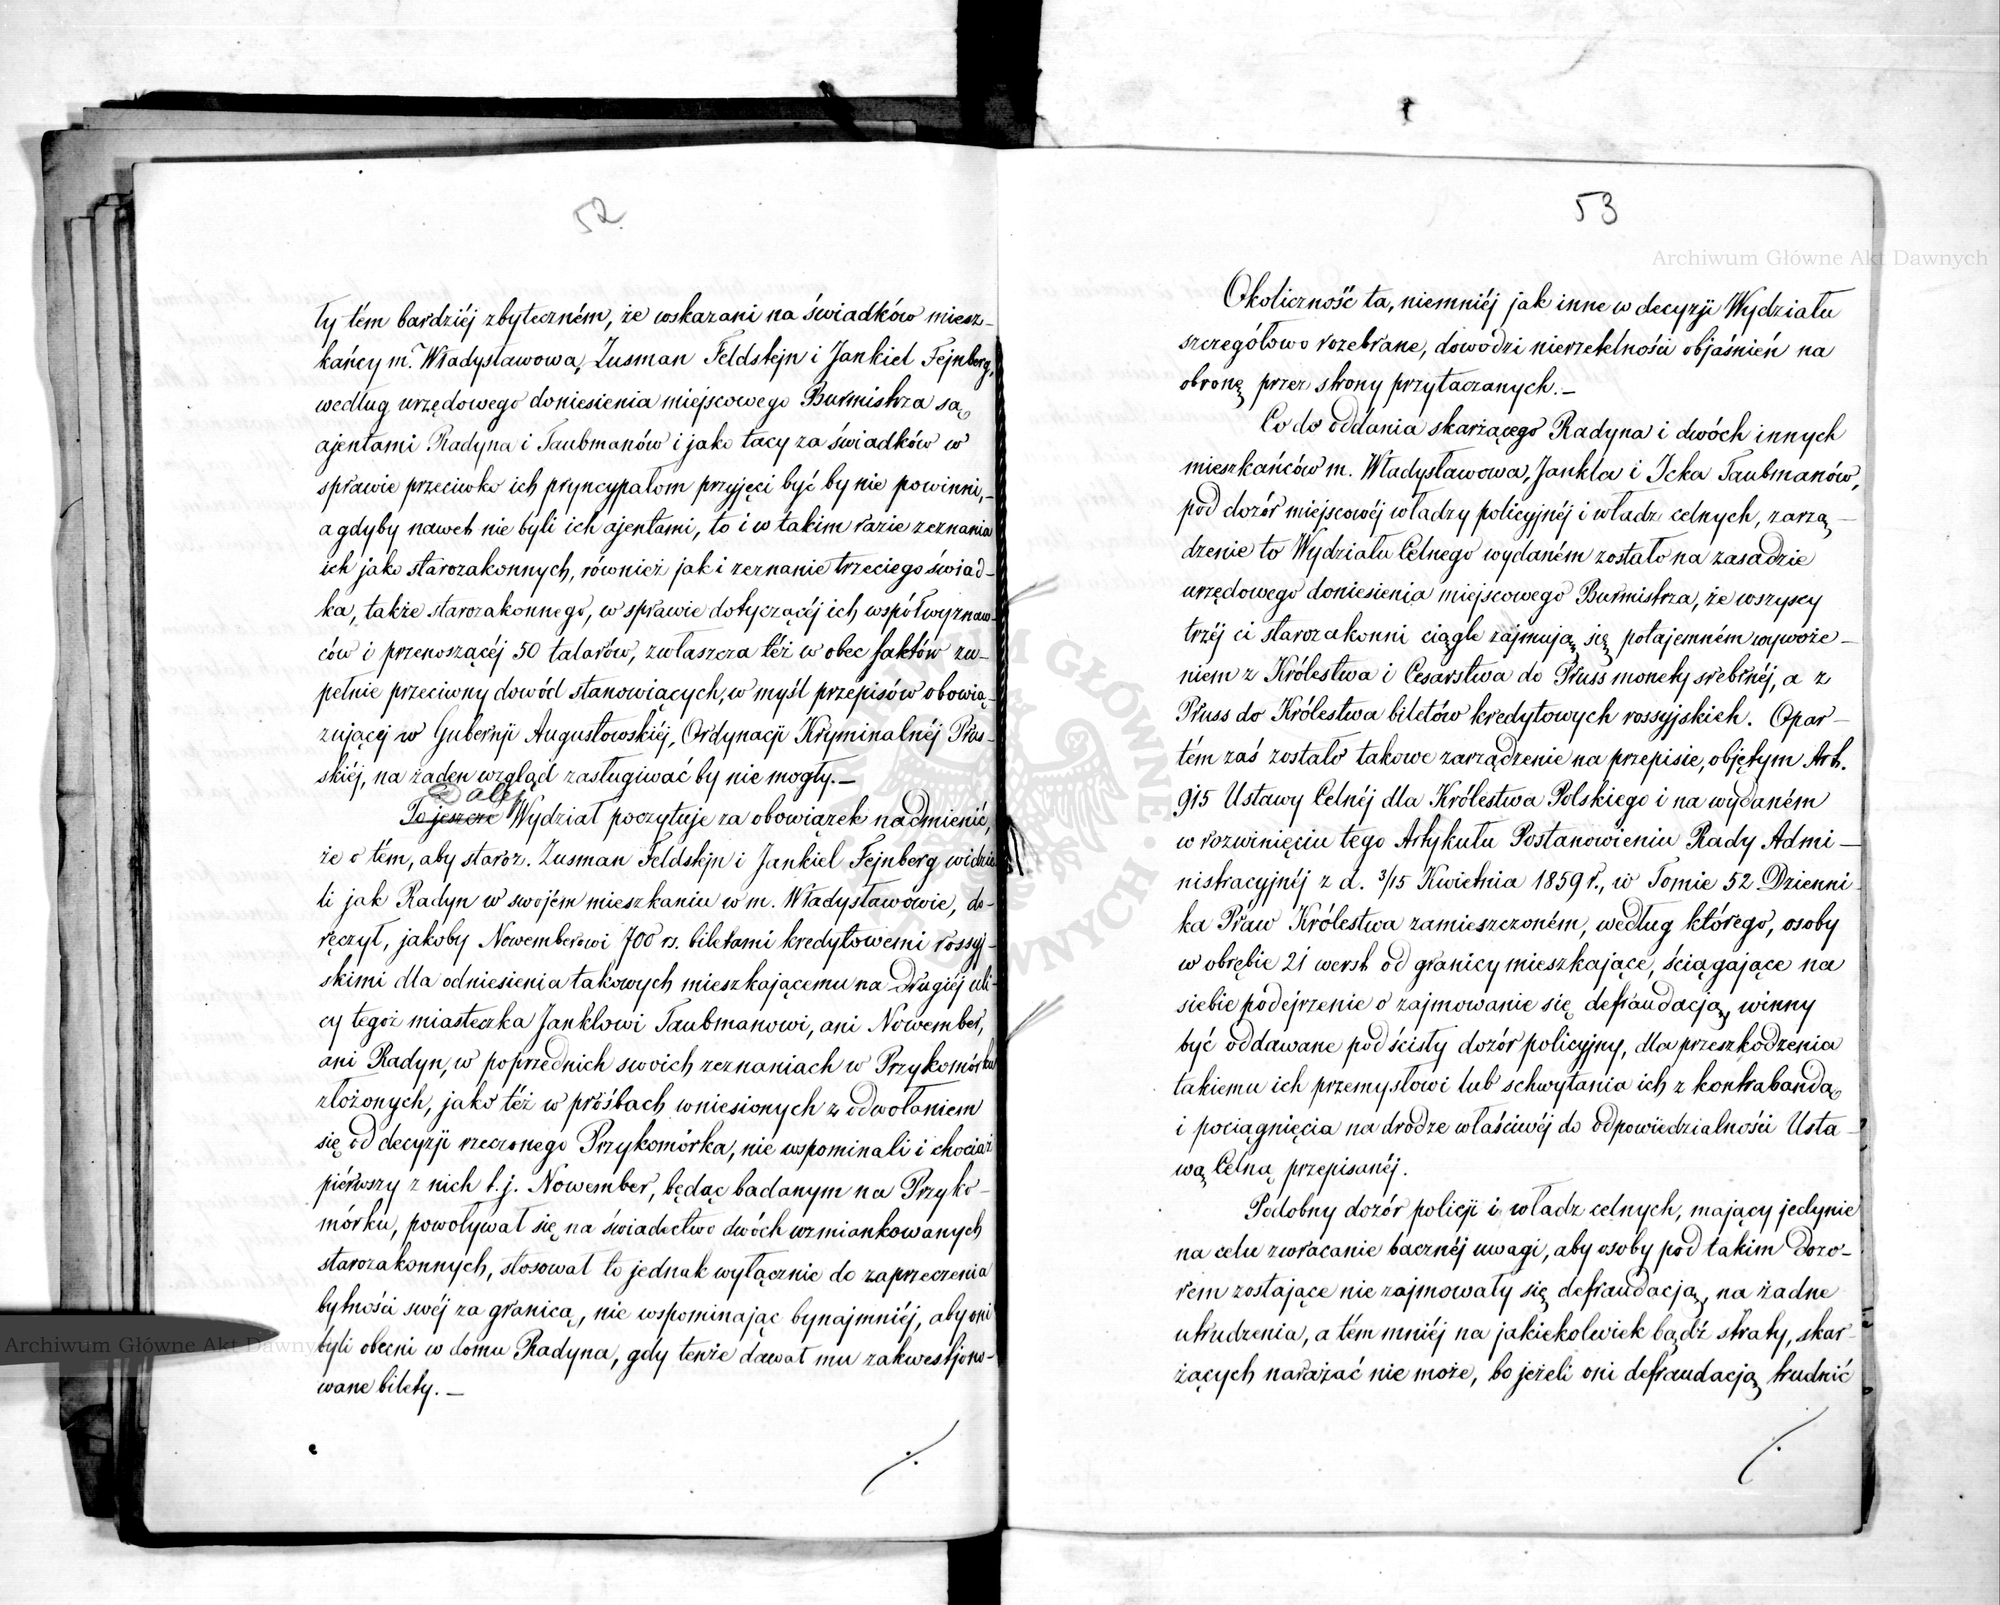 52
ły tém bardziéj zbyteczném, że wskazani na świadków miesz-
kańcy m. Władysławowa, Zusman Feldstejn i Jankiel Fejnberg,
według urzędowego doniesienia miejscowego Burmistrza są
ajentami Radyna i Taubmanów i jako tacy za świadków w
sprawie przeciwko ich pryncypałom przyjęci być by nie powinni,-
a gdyby nawet nie byli ich ajentami, to i w takim razie zeznania
ich jako starozakonnych, również jak i zeznanie trzeciego świad-
ka, także starozakonnego, w sprawie dotyczącéj ich współwyznaw-
ców i przenoszącéj 50 talarów, zwłaszcza téż w obec faktów zu-
pełnie przeciwny dowód stanowiących, w myśl przepisów obowią-
zującéj w Gubernji Augustowskiéj, Ordynacji Kryminalnéj Prus-
skiéj, na żaden wzgląd zasługiwać by nie mogły.-
Daléj
To jeszcze Wydział poczytuje za obowiązek nadmienić,
że o tem, aby staroz. Zusman Feldstejn i Jankiel Fejnberg widzie
li jak Radyn w swojém mieszkaniu w m. Władysławowie, do-
ręczył, jakoby Nowemberowi 700 rs. biletami kredytowemi rossyj-
skimi dla odniesienia takowych mieszkającemu na Drugiéj uli-
cy tegoż miasteczka Janklowi Taubmanowi, ani Nowember,
ani Radyn, w poprzednich swoich zeznaniach w Przykomórku
złożonych, jako téż w prośbach wniesionych z odwołaniem
się od decyzji rzeczonego Przykomórka, nie wspominali i chociaż
piérwszy z nich t.j. Nowember, będąc badanym na Przyko-
mórku, powoływał się na świadectwo dwóch wzmiankowanych
starozakonnych, stosował to jednak wyłącznie do zaprzeczenia
bytności swéj za granicą, nie wspominając bynajmniéj, aby oni
byli obecni w domu Radyna, gdy tenże dawał mu zakwestjono-
wane bilety.-
53
Okoliczność ta, niemniéj jak inne w decyzji Wydziału
szczegółowo rozebrane, dowodzi nierzetelności objaśnień na
obronę przez strony przytaczanych.-
Co do oddania skarżącego Radyna i dwóch innych
mieszkańców m. Władysławowa, Jankla i Icka Taubmanów,
pod dozór miejscowéj władzy policyjnéj i władz celnych, zarzą-
dzenie to Wydziału Celnego wydaném zostało na zasadzie
urzędowego doniesienia miejscowego Burmistrza, że wszyscy
trzéj ci starozakonni ciągle zajmują się potajemném wywoże-
niem z Królestwa i Cesarstwa do Pruss monety srebrnéj, a z
Pruss do Królestwa biletów kredytowych rossyjskich. Opar-
tém zaś zostało takowe zarządzenie na przepisie, objętym Art.
915 Ustawy Celnéj dla Królestwa Polskiego i na wydaném
w rozwinięciu tego Artykułu Postanowieniu Rady Admi-
nistracyjnéj z d. 3/15 Kwietnia 1859 r., w Tomie 52 Dzienni-
ka Praw Królestwa zamieszczoném, według którego, osoby
w obrębie 21 werst od granicy mieszkające, ściągające na
siebie podejrzenie o zajmowanie się defraudacją, winny
być oddawane pod ścisły dozór policyjny, dla przeszkodzenia
takiemu ich przemysłowi lub schwytania ich z kontrabandą
i pociągnięcia na drodze właściwéj do odpowiedzialności Usta-
wą Celną przepisanéj.
Podobny dozór policji i władz celnych, mający jedynie
na celu zwracanie bacznéj uwagi, aby osoby pod takim dozo-
rem zostające nie zajmowały się defraudacją, na żadne
utrudzenia, a tém mniéj na jakiekolwiek bądź straty, skar-
żących narażać nie może, bo jeżeli oni defraudacją trudnić
Archiwum Główne Akt Dawnych
Archiwum Główne Akt Dawnych